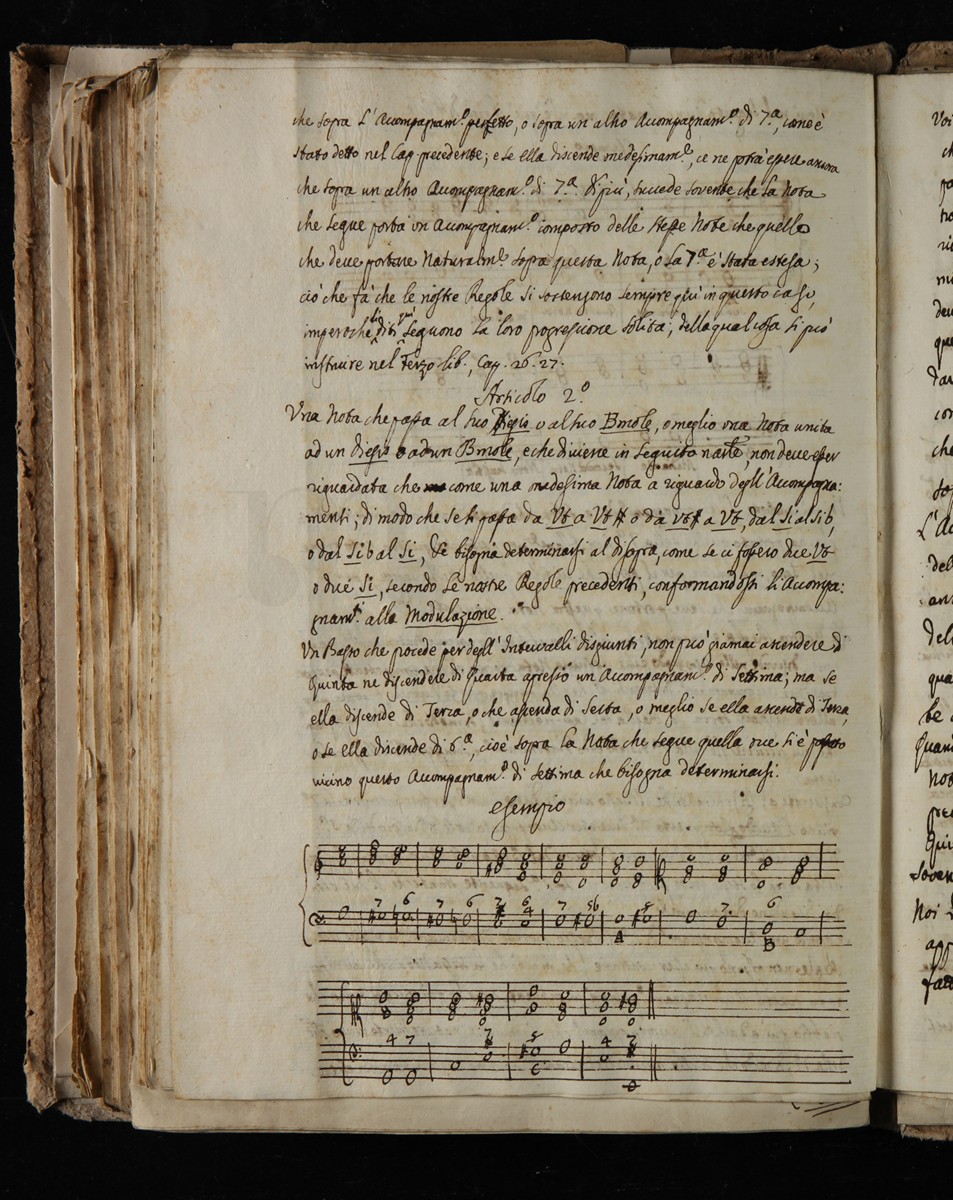 che sopra l'Acompagnam.º perfetto, o sopra un altro Acompagnam.º di 7.ª, come è
stato detto nel Cap. precedente; e se ella discende medesimam.e, ce ne potrà essere ancora
che sopra un altro Acompagnam.º di 7.ª Di più, succede sovente che la Nota
che segue porta un Acompagnam.º composto delle stesse Note che quello
che deve portare Naturalm.e sopra questa Nota, o la 7.ª è stata estesa;
ciò che fà che le nostre Regole si sostengono sempre più in questo caso,
imperochè li diti seguono la loro progressione solita; della qual cosa si può
instruire nel Terzo lib., Cap. 26. 27.
Articolo 2.º
Una Nota che passa al suo Diesis o al suo Bmole, o meglio una Nota unita
ad un diesis o ad un Bmole, e che diviene in seguito naile, non deve esser
riguardata che come una medesima Nota a riguardo degl'Acompagna:
menti; di modo che se si passa da Vt a Vt # o da vt # a Vt, dal Si al sib,
o dal sib al Si, Se bisogna determinarsi al disopra, come se ci fossero due Vt
o due Si, secondo le nostre Regole precedenti, conformandosi li Accompa:
gnam.ti alla Modulazione.
Un Basso che procede per degl'Intervalli disgiunti, non può giamai ascendere di
Quinta ne discendere di Quarta apresso un Accompagnam.º di Settima; ma se
ella discende di Terza, o che ascenda di Sesta, o meglio se ella ascende di Terza,
o se ella discende di 6.ª, cioè sopra la Nota che segue quella ove si è passato
vicino questo Accompagnam.º di settima che bisogna determinarsi.
esempio
7 6 7 6 7 6 7 56 5 7 6
A B
4 7 7 5 4 7
C